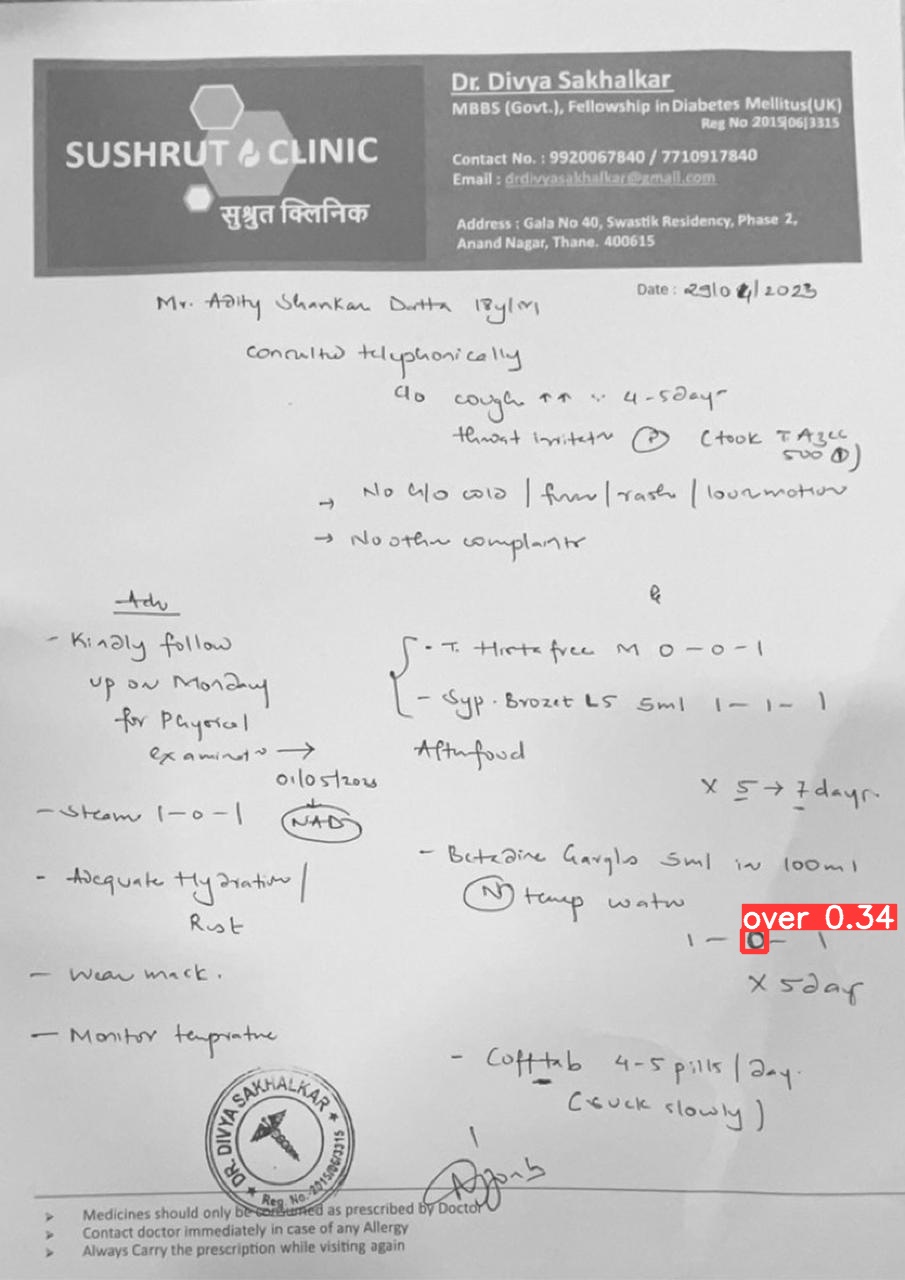 SUSHRUT CLINIC
सुश्रुत क्लिनिक
Dr. Divya Sakhalkar
MBBS (Govt.), Fellowship in Diabetes Mellitus(UK)
Reg No 2015|06|3315
Contact No. : 9920067840 / 7710917840
Email : drdivyasakhalkar@gmail.com
Address : Gala No 40, Swastik Residency, Phase 2,
Anand Nagar, Thane. 400615
Date : 29/04/2023
Mr. Adity Shankar Dutta 18y/M
Consulted telephonically
c/o cough ↑↑ 4-5 days
throat irritatn (took T Azee
500 ①)
→ No c/o cold / fever / rash / loosemotion
→ No other complaints
Adv
- Kindly follow
up on Monday
for Physical
examinatn →
01/05/2023
NAD
- Steam 1-0-1
- Adequate Hydration /
Rest
- Wear mask.
- Monitor temprature
- T. Histafree M 0-0-1
- Syp. Brozet LS 5ml 1-1-1
After food
x 5 → 7 days.
- Betadine Gargles 5ml in 100ml
(N) temp water
over 0.34
1-0-1
x 5 day
- Cofftab 4-5 pills / day.
(suck slowly)
DR. DIVYA SAKHALKAR
Reg. No.-2015/06/3315
➤ Medicines should only be consumed as prescribed by Doctor
➤ Contact doctor immediately in case of any Allergy
➤ Always Carry the prescription while visiting again